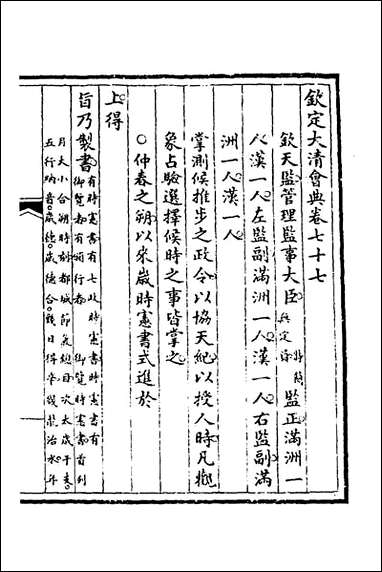 欽定大清會典卷七十七
欽天監管理監事大臣無定員特簡監正滿洲一
人漢一人左監副滿洲一人漢一人右監副滿
洲一人漢一人
掌測候推步之政令以協天紀以授人時凡觀
象占驗選擇候時之事皆掌之
○仲春之朔以來歲時憲書式進於
上得
旨乃製書有時憲書有七政時憲書時憲書有
御覽者有頒行者御覽時憲書首列
月大小合朔時刻都城節氣總目次太歲干支
五行納音歲德歲德合幾日得辛幾龍治水年